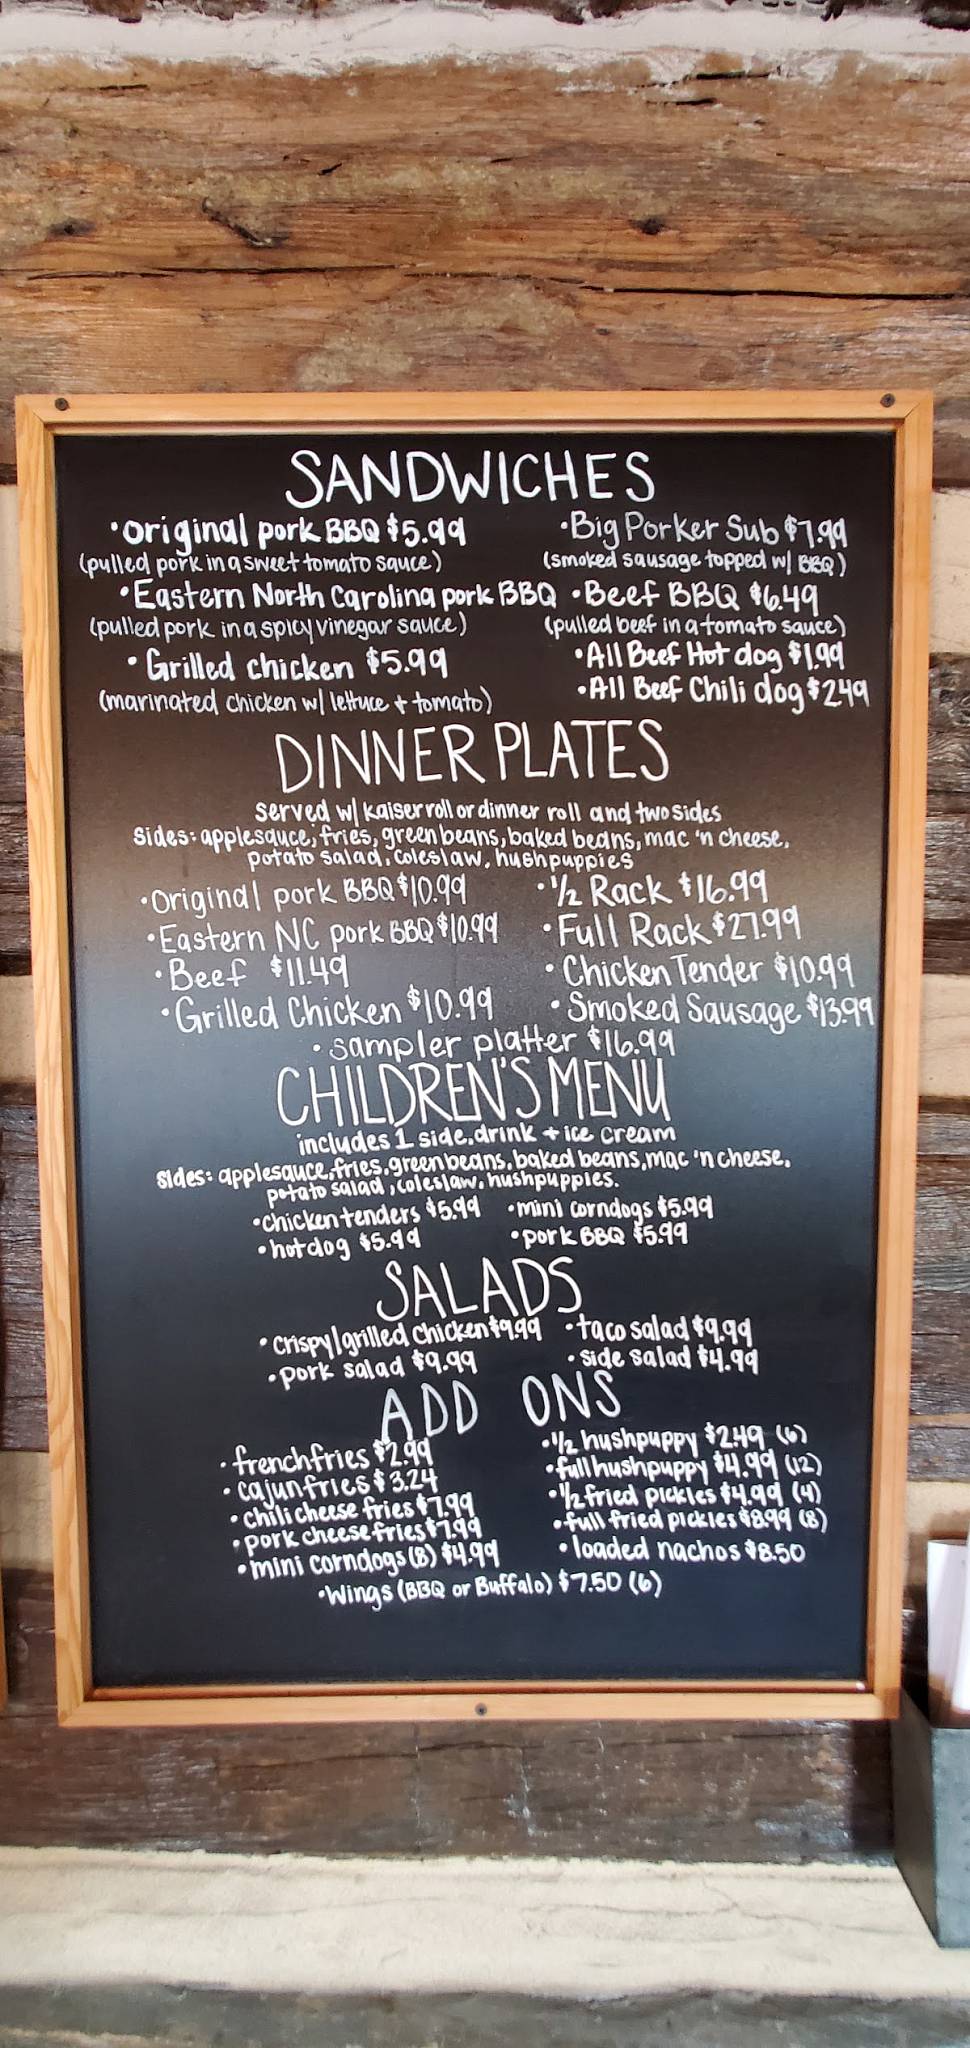 SANDWICHES
•original pork BBQ $5.99
(pulled pork in a sweet tomato sauce)
•Eastern North Carolina pork BBQ
(pulled pork in a spicy vinegar sauce)
•Grilled chicken $5.99
(marinated chicken w/ lettuce + tomato)
•Big Porker Sub $7.99
(smoked sausage topped w/ BBQ)
•Beef BBQ $6.49
(pulled beef in a tomato sauce)
•All Beef Hot dog $1.99
•All Beef Chili dog $2.49
DINNER PLATES
served w/ kaiser roll or dinner roll and two sides
sides: applesauce, fries, green beans, baked beans, mac 'n cheese,
potato salad, coleslaw, hushpuppies
•Original pork BBQ $10.99
•Eastern NC pork BBQ $10.99
•Beef $11.49
•Grilled Chicken $10.99
•1/2 Rack $16.99
•Full Rack $27.99
•Chicken Tender $10.99
•Smoked Sausage $13.99
•sampler platter $16.99
CHILDREN'S MENU
includes 1 side, drink + ice cream
sides: applesauce, fries, green beans, baked beans, mac 'n cheese,
potato salad, coleslaw, hushpuppies.
•chicken tenders $5.99
•hotdog $5.99
•mini corndogs $5.99
•pork BBQ $5.99
SALADS
•crispy/grilled chicken $9.99
•pork salad $9.99
•taco salad $9.99
•side salad $4.99
ADD ONS
•french fries $2.99
•cajun fries $3.24
•chili cheese fries $7.99
•pork cheese fries $7.99
•mini corndogs (8) $4.99
•1/2 hushpuppy $2.49 (6)
•full hushpuppy $4.99 (12)
•1/2 fried pickles $4.99 (4)
•full fried pickles $8.99 (8)
•loaded nachos $8.50
•Wings (BBQ or Buffalo) $7.50 (6)